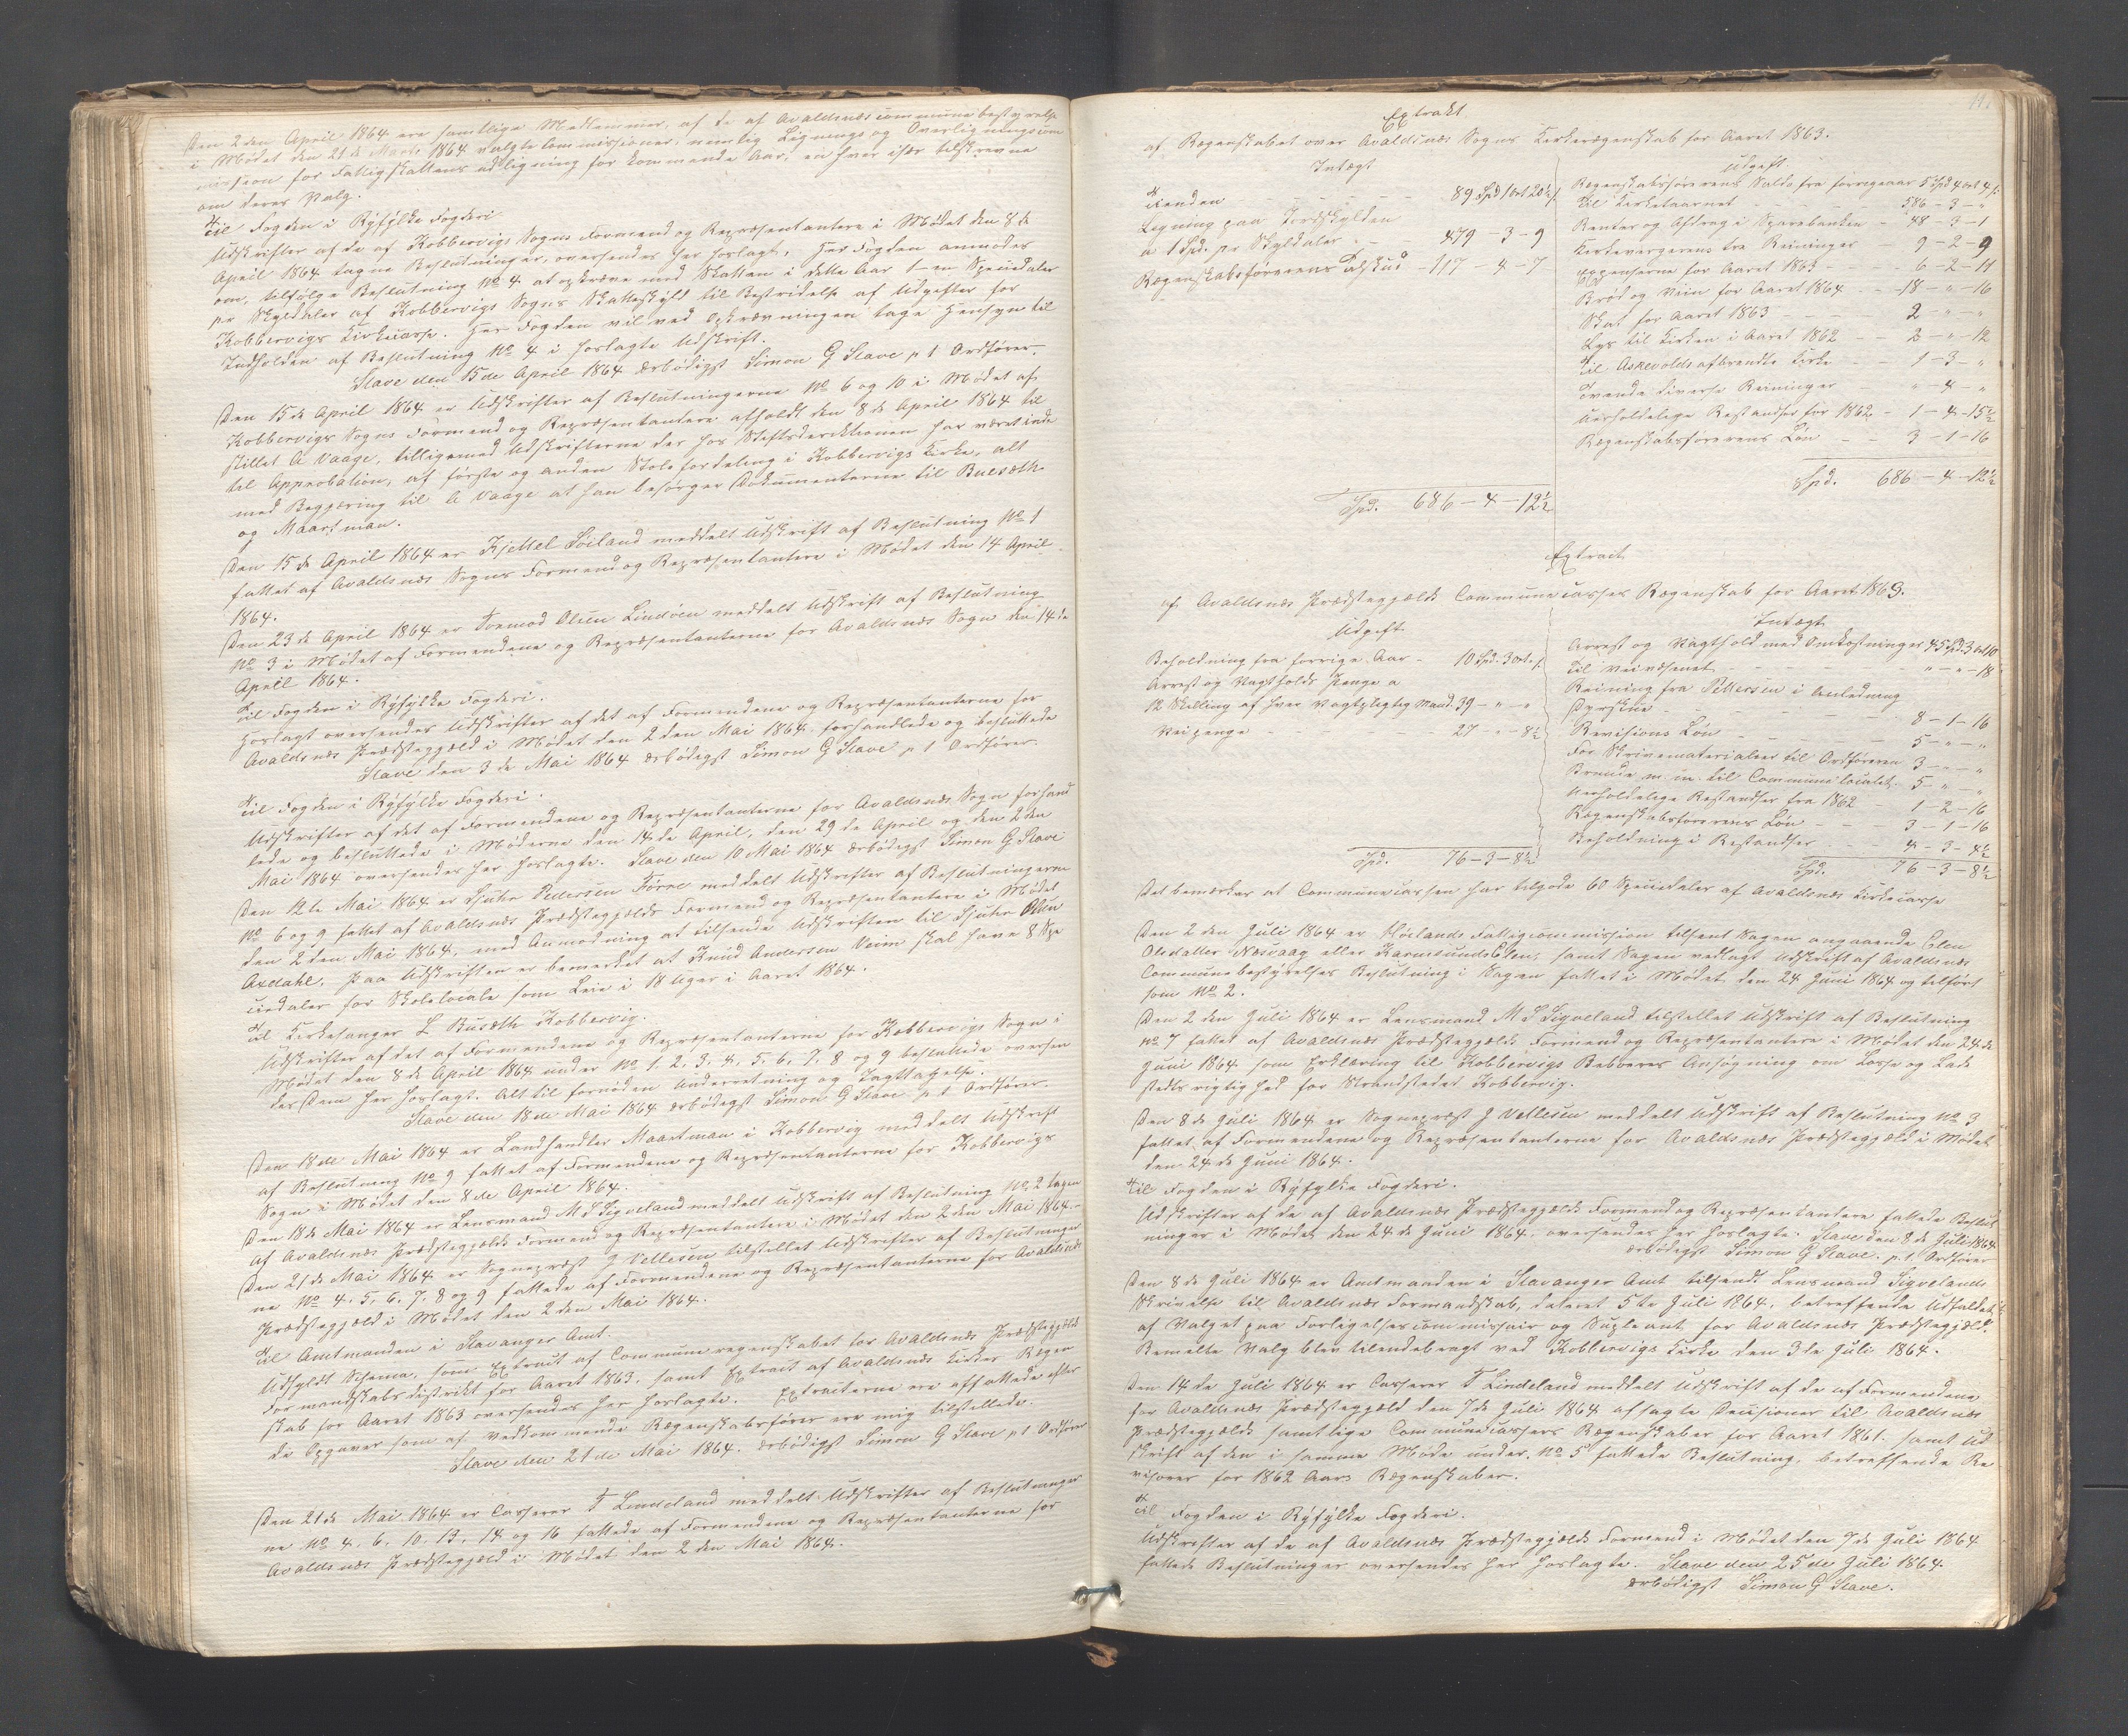 Den 2den April 1864 ere samtlige Medlemmer, af de af Avaldsnæs communebestyrelse
i Mødet den 21de Marts 1864 valgte Commissioner, nemlig Lignings og Overligningscom
mission for Fattigskattens udligning for kommende Aar, en hver især tilskrevne
om deres Valg.
Til Fogden i Ryfylke Fogderi
Udskrifter af de af Kobbervigs Sogns Formend og Repræsentantere i Mødet den 8de
April 1864 tagne Beslutninger, oversendes her hoslagt, Her Fogden anmodes
om, tilfølge Beslutning No 4 at opkræve med Skatten i dette Aar 1 en Speciedaler
pr Skyldaler af Kobbervigs Sogns Skatteskyld til Bestridelse af Udgifter for
Kobbervigs Kirkecasse. Her Fogden vil ved Opkrævningen tage Hensyn til
Indholden af Beslutning No 4 i hoslagte Udskrift.
Stave den 15de April 1864 ærbødigst Simon G Stave p t Ordfører.
Den 15de April 1864 er Udskrifter af Beslutningerne No 6 og 10 i Mødet af
Kobbervigs Sogns Formend og Repræsentantere afholdt den 8de April 1864 til
stillet A Vaage, tilligemed Udskrifterne der hos Stiftsdirektionen har været inde
til Approbation, af første og anden Stolefordeling i Kobbervigs Kirke, alt
med Begjæring til A Vaage at han besørger Dokumenterne til Buesæth
og Maartman.
Den 15de April 1864 er Kjettel Søiland meddelt Udskrift af Beslutning No 1
fattet af Avaldsnæs Sogns Formend og Repræsentantere i Mødet den 14 April
1864.
Den 23de April 1864 er Tormod Olsen Lindøen meddelt Udskrift af Beslutning
No 3 i Mødet af Formendene og Repræsentanterne for Avaldsnæs Sogn den 14de
April 1864.
Til Fogden i Ryfylke Fogderi.
Hoslagt oversendes Udskrifter af det af Formendene og Repræsentanterne for
Avaldsnæs Prædstegjæld i Mødet den 2den Mai 1864 forhandlede og besluttede
Stave den 3de Mai 1864 ærbødigst Simon G Stave p t Ordfører.
Til Fogden i Ryfylke Fogderi.
Udskrifter af det af Formendene og Repræsentanterne for Avaldsnæs Sogn forhand
lede og besluttede i Møderne den 14de April, den 29de April og den 2den
Mai 1864 oversendes her hoslagte. Stave den 10 Mai 1864 ærbødigst Simon G Stave
Den 12te Mai 1864 er Sjuhr Pedersen Førre meddelt Udskrifter af Beslutningerne
No 6 og 9 fattet af Avaldsnæs Prædstegjælds Formend og Repræsentantere i Mødet
den 2den Mai 1864, med Anmodning at tilsende Udskriften til Sjuhr Olsen
Axdahl, paa Udskriften er bemerket at Knud Andersen Veim skal have 8 Spe
ciedaler for Skolelocale som Leie i 18 Uger i Aaret 1864.
Til Kirkesanger L Buesæth Kobbervig.
Udskrifter af det af Formendene og Repræsentanterne for Kobbervigs Sogn i
Mødet den 8de April 1864 under No 1. 2. 3. 4. 5. 6. 7. 8 og 9 besluttede oversen
des Dem her hoslagt. Alt til fornøden Underretning og Iagttagelse.
Stave den 18de Mai 1864 ærbødigst Simon G Stave p t Ordfører.
Den 18de Mai 1864 er Landhandler Maartman i Kobbervig meddelt Udskrift
af Beslutning No 9 fattet af Formendene og Repræsentanterne for Kobbervigs
Sogn i Mødet den 8de April 1864.
Den 18de Mai 1864 er Lensmand M S Sigveland meddelt Udskrift af Beslutning No 2 tagen
af Avaldsnæs Prædstegjælds Formend og Repræsentantere i Mødet den 2den Mai 1864.
Den 21de Mai 1864 er Sognepræst J Vellesen tilstellet Udskrifter af Beslutninger
ne No 4. 5. 6. 7. 8 og 9 fattede af Formendene og Repræsentanterne for Avaldsnæs
Prædstegjæld i Mødet den 2den Mai 1864.
Til Amtmanden i Stavanger Amt.
Udfyldt Schema, som Extract af Communeregenskabet for Avaldsnæs Prædstegjælds
Formandskabsdistrikt for Aaret 1863, samt Extract af Avaldsnæs Kirkes Regen
skab for Aaret 1863 oversendes her hoslagte. Extracterne ere affattede efter
de Opgaver som af vedkommende Regenskabsfører ere mig tilstellede.
Stave den 21de Mai 1864. ærbødigst Simon G Stave p t Ordfører
Den 21de Mai 1864 er Casserer T Lindeland meddelt Udskrifter af Beslutninger
ne No 4. 6. 10. 13. 14 og 16 fattede af Formendene og Repræsentanterne for
Avaldsnæs Prædstegjæld i Mødet den 2den Mai 1864.
Extrakt
af Regenskabet over Avaldsnæs Sogns Kirkeregenskab for Aaret 1863.
Indtægt
Tienden - - - 89 Spd 1 ort 20½ s
Ligning paa Jordskylden
a 1 Spd. pr Skyldaler - - 479 - 3 - 9
Regenskabsførerens Tilskud - 117 - 4 - 7
Spd. 686 - 4 - 12½
Udgift.
Regenskabsførerens Saldo fra forrige aar 5 Spd 4 ort 4 s.
Til Kirketaarnet - - 586 - 3 - "
Renter og Afdrag i Sparebanken 48 - 3 - 1
Kirkeværgerens fra Reininger 9 - 2 - 9
Expenserne for Aaret 1863 - - 6 - 2 - 11
Brød og Viin for Aaret 1864 - - 18 - " - 16
Skat for Aaret 1863 - - 2 - " - "
Lys til Kirken i Aaret 1862 - - 2 - " - 12
Til Askevolds afbrendte Kirke - - 1 - 3 - "
Tvende diverse Reininger - " - 4 - "
Uerholdelige Restandser for 1862 - 1 - 4 - 15½
Regenskabsførerens Løn - - 3 - 1 - 16
Spd. 686 - 4 - 12½
Extract
af Avaldsnæs Prædstegjælds Communecasses Regenskab for Aaret 1863.
Udgift
Beholdning fra forrige Aar - 10 Spd. 3 ort. s.
Arrest og Vagtholds Penge a
12 Skilling af hver Vagtpligtig Mand 39 - " - "
Veipenge - - 27 - " - 8½
Spd. 76 - 3 - 8½
Indtægt
Arrest og Vagthold med Omkostninger 45 Spd 3 ort 10
Til Veivæsenet - - " - " - 18
Reining fra Pettersen i Anledning
- - 8 - 1 - 16
Revisions Løn - - 5 - " - "
For Skrivematerialier til Ordføreren 3 - " - "
Brende m. m. til Communelocalet. 5 - " - "
Uerholdelige Restandser fra 1862 - 1 - 2 - 16
Regenskabsførerens Løn - - 3 - 1 - 16
Beholdning i Restandser - - 4 - 3 - 4½
Spd. 76 - 3 - 8½
Det bemærkes at Communecassen har tilgode 60 Speciedaler af Avaldsnæs Kirkecasse
Den 2den Juli 1864 er Høilands Fattigcommission tilsent Sagen angaaende Elen
Olsdatter Næsvaag eller Karmsunds Elen, samt Sagen vedlagt Udskrift af Avaldsnæs
Communebestyrelses Beslutning i Sagen fattet i Mødet den 24 Juni 1864 og tilført
som No 2.
Den 2den Juli 1864 er Lensmand M S Sigveland tilstellet Udskrift af Beslutning
No 7 fattet af Avaldsnæs Prædstegjælds Formend og Repræsentantere i Mødet den 24de
Juni 1864 som Erklæring til Kobbervigs Beboeres Ansøgning om Losse og Lade
stedsrigtighed for Strandstedet Kobbervig.
Den 8de Juli 1864 er Sognepræst J Vellesen meddelt Udskrift af Beslutning No 3
fattet af Formendene og Repræsentanterne for Avaldsnæs Prædstegjæld i Mødet
den 24de Juni 1864.
Til Fogden i Ryfylke Fogderi.
Udskrifter af de af Avaldsnæs Prædstegjælds Formend og Repræsentantere fattede Beslut
ninger i Mødet den 24de Juni 1864, oversendes her hoslagte. Stave den 8de Juli 1864
ærbødigst Simon G Stave. p. t Ordfører
Den 8de Juli 1864 er Amtmanden i Stavanger Amt tilsendt Lensmand Sigvelands
Skrivelse til Avaldsnæs Formandskab, dateret 5te Juli 1864, betreffende Udfaldet
af Valget paa Forligelsescommissair og Supleant for Avaldsnæs Prædstegjæld.
Bemelte Valg blev tilendebragt ved Kobbervigs Kirke den 3de Juli 1864.
Den 14de Juli 1864 er Casserer T Lindeland meddelt Udskrift af de af Formendene
for Avaldsnæs Prædstegjæld den 7de Juli 1864 afsagte Decisioner til Avaldsnæs
Prædstegjælds samtlige Communecassers Regenskaber for Aaret 1861. samt Ud
skrift af den i samme Møde under No 5 fattede Beslutning, betreffende Re
visorer for 1862 Aars Regenskaber.
Til Fogden i Ryfylke Fogderi.
Udskrifter af de af Avaldsnæs Prædstegjælds Formend i Mødet den 7de Juli 1864
fattede Beslutninger oversendes her hoslagte. Stave den 25de Juli 1864
ærbødigst Simon G Stave.